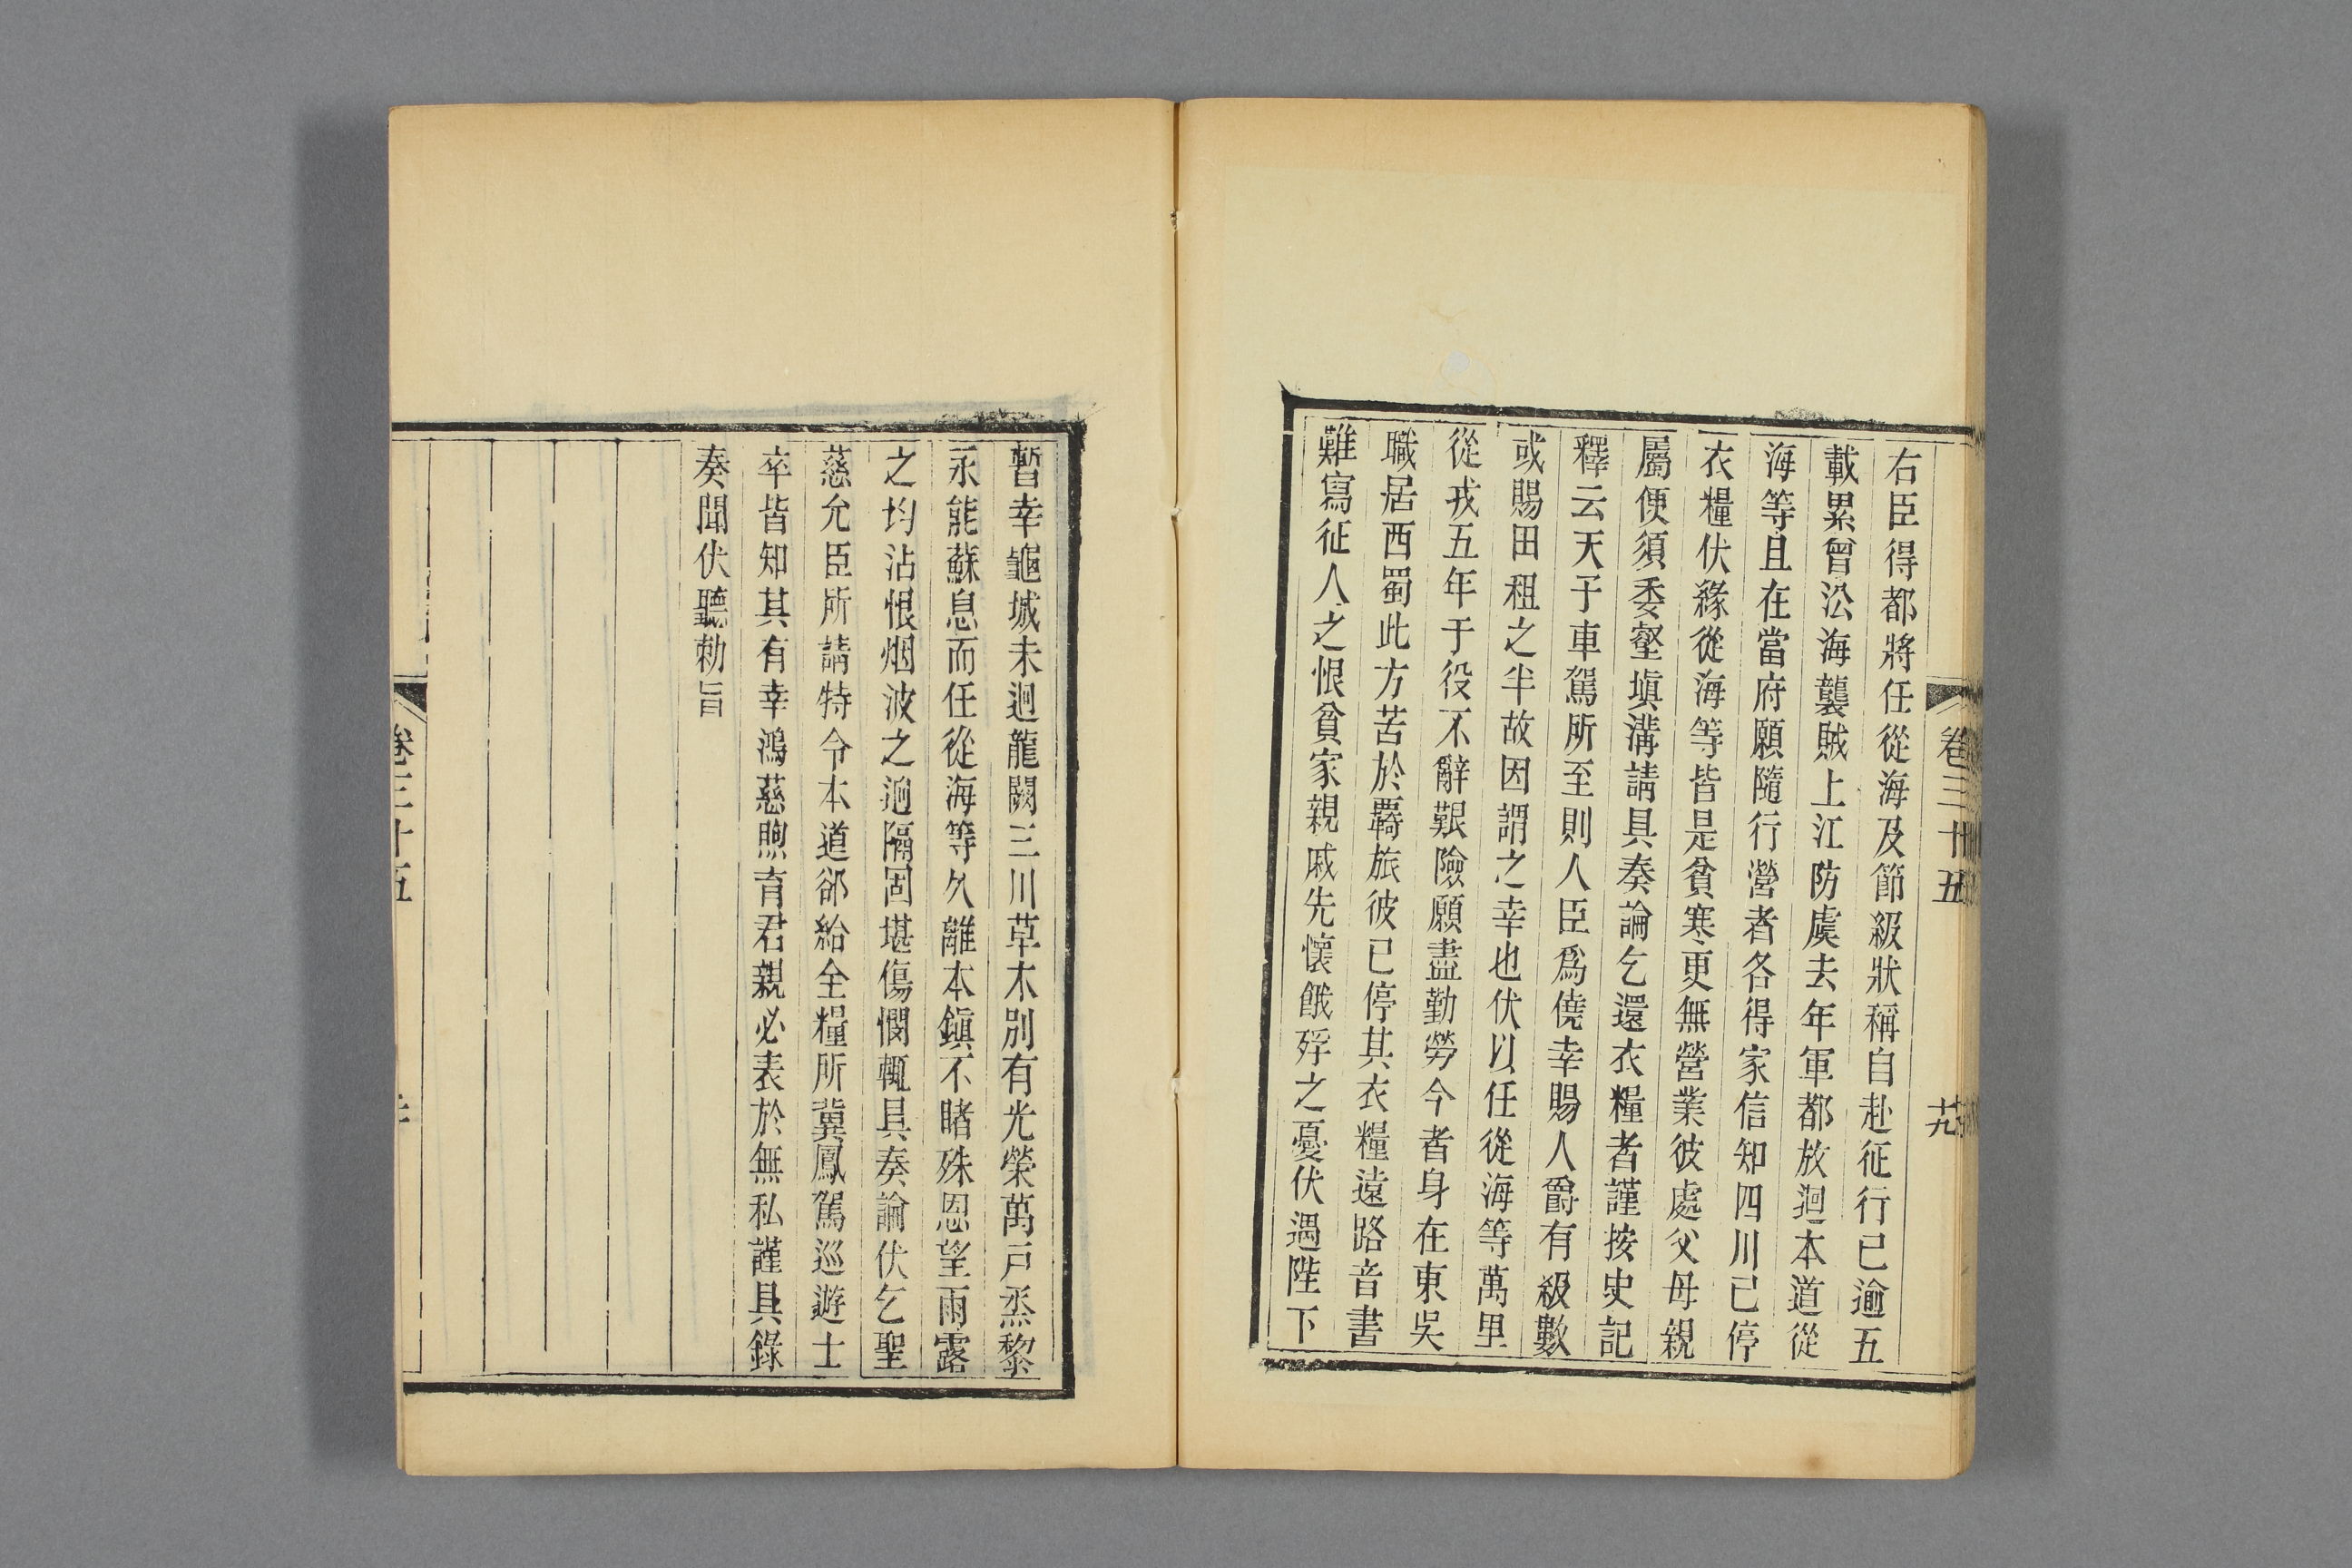 右臣得都將任從海及節級狀稱自赴征行已逾五
載累曾㳂海襲賊上江防虞去年軍都放迴本道從
海等且在當府願隨行營者各得家信知四川已停
衣糧伏緣從海等皆是貧寒更無營業彼處父母親
屬便須委壑塡溝請具奏論乞還衣糧者謹按史記
釋云天子車駕所至則人臣爲僥幸賜人爵有級數
或賜田租之半故因謂之幸也伏以任從海等萬里
從戎五年于役不辭艱險願盡勤勞今者身在東吳
職居西蜀此方苦於羇旅彼已停其衣糧遠路音書
難寫征人之恨貧家親戚先懷餓殍之憂伏遇陛下
卷三十五
十九
暫幸龜城未迴龍闕三川草木別有光榮萬戶烝黎
永能蘇息而任從海等久離本鎭不睹殊恩望雨露
之均沾恨烟波之逈隔固堪傷憫輒具奏論伏乞聖
慈允臣所請特令本道卻給全糧所冀鳳駕巡遊士
卒皆知其有幸鴻慈煦育君親必表於無私謹具錄
奏聞伏聽勅旨
卷三十五